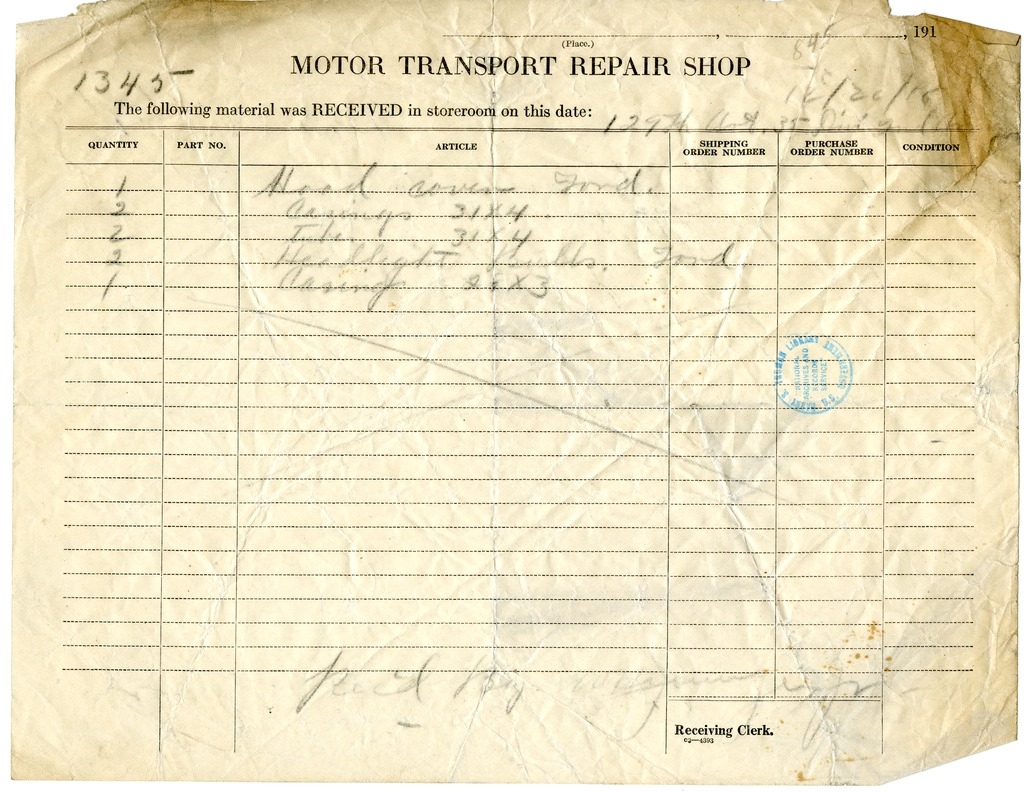 , , 191
(Place.)
MOTOR TRANSPORT REPAIR SHOP
1345
12/20/18
The following material was RECEIVED in storeroom on this date:
129th Art. 35 Div
QUANTITY PART NO. ARTICLE SHIPPING ORDER NUMBER PURCHASE ORDER NUMBER CONDITION
1 Hood cover Ford.
2 Casings 31X4
2 Tube 31X4
2 Headlight bulbs. Ford
1 Casing X3
HARRY S. TRUMAN LIBRARY INDEPENDENCE
NATIONAL
ARCHIVES AND
RECORDS
SERVICE
Rec'd by
Receiving Clerk.